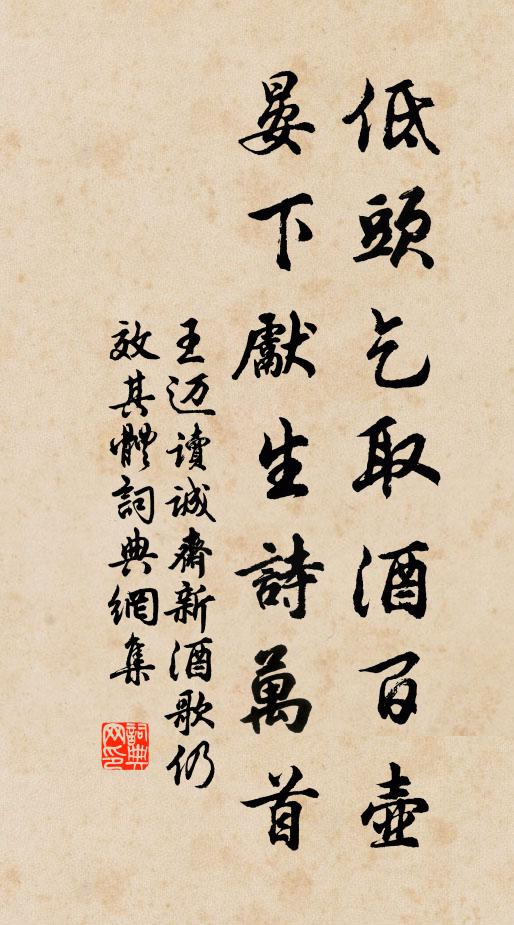 低頭乞取酒百壺
晏下獻生詩萬首
王迈讀誠齋新酒歌仍
效其體詞典網集
詞典网印